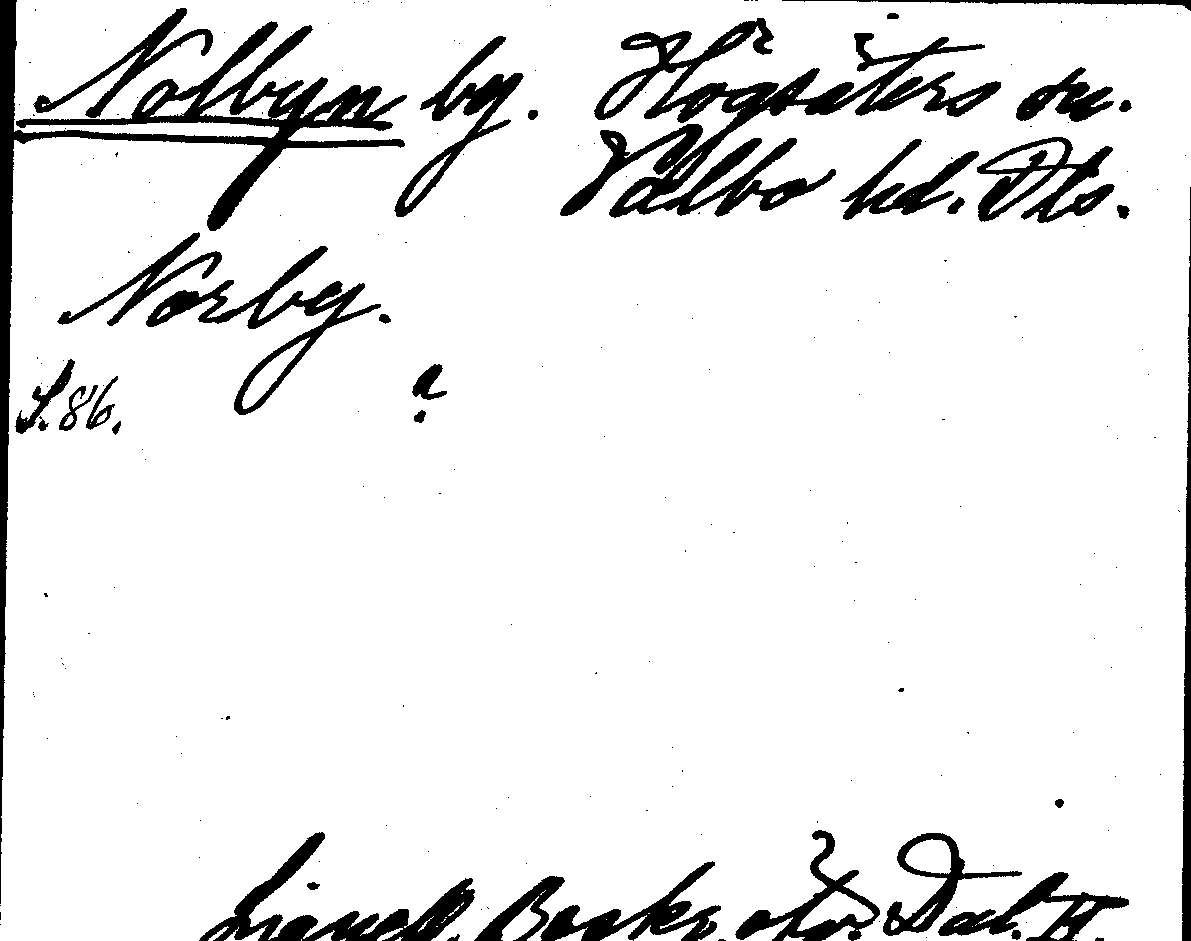 Nolbyn by. Högsäters sn.
Valbo hd. Dls.
Norby.
S. 86. ?
Lignell, Beskr. öfv. Dal. II.